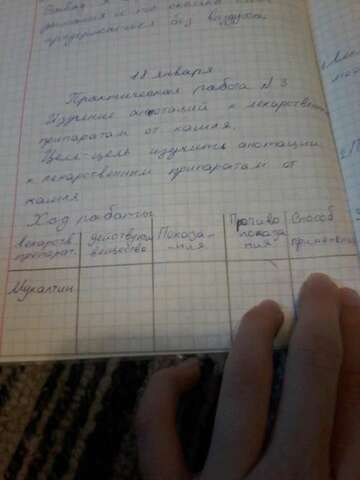 18 января
Практическая работа N 3
Изучение анотаций к лекарствен
припаратам от кашля.
Цель-цель изучить анотации
к лекарственным припаратам от
кашля
Ход работы
лекарств. препарат. действующ вещество Показа-ния Противо показа ния Способ применения
Мукалтин